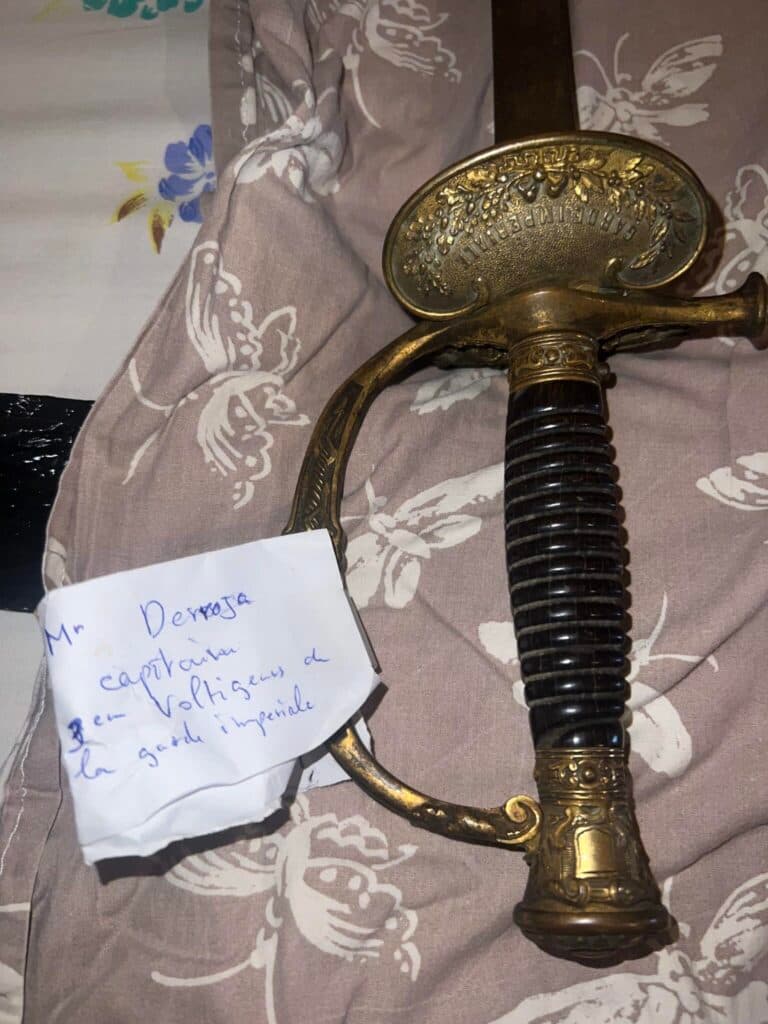 GARDE IMPERIALE
Mr Derroja
capitaine
3em Voltigeurs de
la garde imperiale